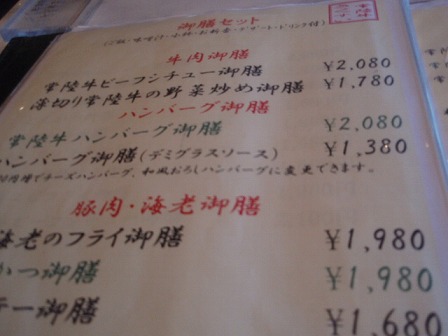 御膳セット
(ご飯・味噌汁・小鉢・お新香・デザート・ドリンク付)
牛肉御膳
常陸牛ビーフシチュー御膳 ¥2,080
薄切り常陸牛の野菜炒め御膳 ¥1,780
ハンバーグ御膳
常陸牛ハンバーグ御膳 ¥2,080
ハンバーグ御膳(デミグラスソース) ¥1,380
円増でチーズハンバーグ、和風おろしハンバーグに変更できます。
豚肉・海老御膳
海老のフライ御膳 ¥1,980
かつ御膳 ¥1,980
テー御膳 ¥1,680